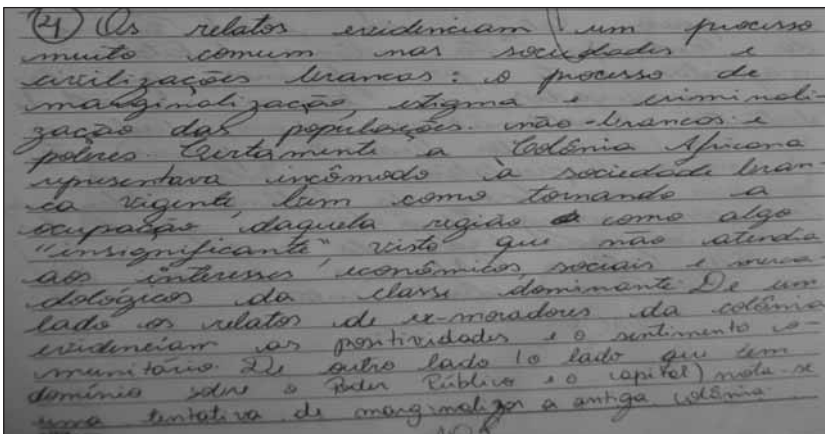 ④ Os relatos evidenciam um processo
muito comum nas sociedades e
civilizações brancas: o processo de
marginalização, estigma e criminali-
zação das populações não-brancas e
pobres. Certamente a Colônia Africana
representava incômodo à sociedade bran-
ca vigente, bem como tornando a
ocupação daquela região como algo
"insignificante", visto que não atendia
aos interesses econômicos, sociais e merca-
dológicos da classe dominante. De um
lado os relatos de ex-moradores da colônia
evidenciam as positividades e o sentimento co-
munitário. De outro lado (o lado que tem
domínio sobre o Poder Público e o capital) nota-se
uma tentativa de marginalizar a antiga colônia